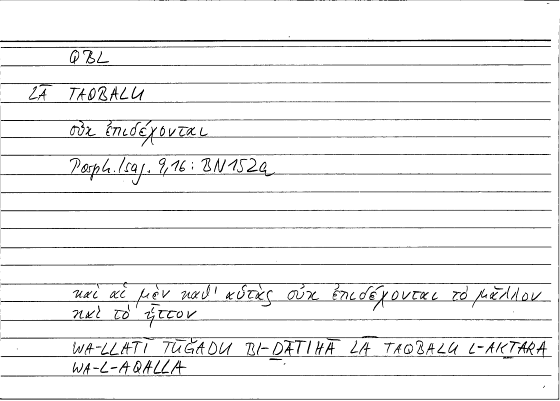 QBL
LĀ TAQBALU
οὐκ ἐπιδέχονται
Porph. Isag. 9,16 : BN 152a
καὶ αἱ μὲν καθ' αὑτὰς οὐκ ἐπιδέχονται τὸ μᾶλλον
καὶ τὸ ἧττον
WA-LLATĪ TŪǦADU BI-ḎĀTIHĀ LĀ TAQBALU L-AKṮARA
WA-L-AQALLA